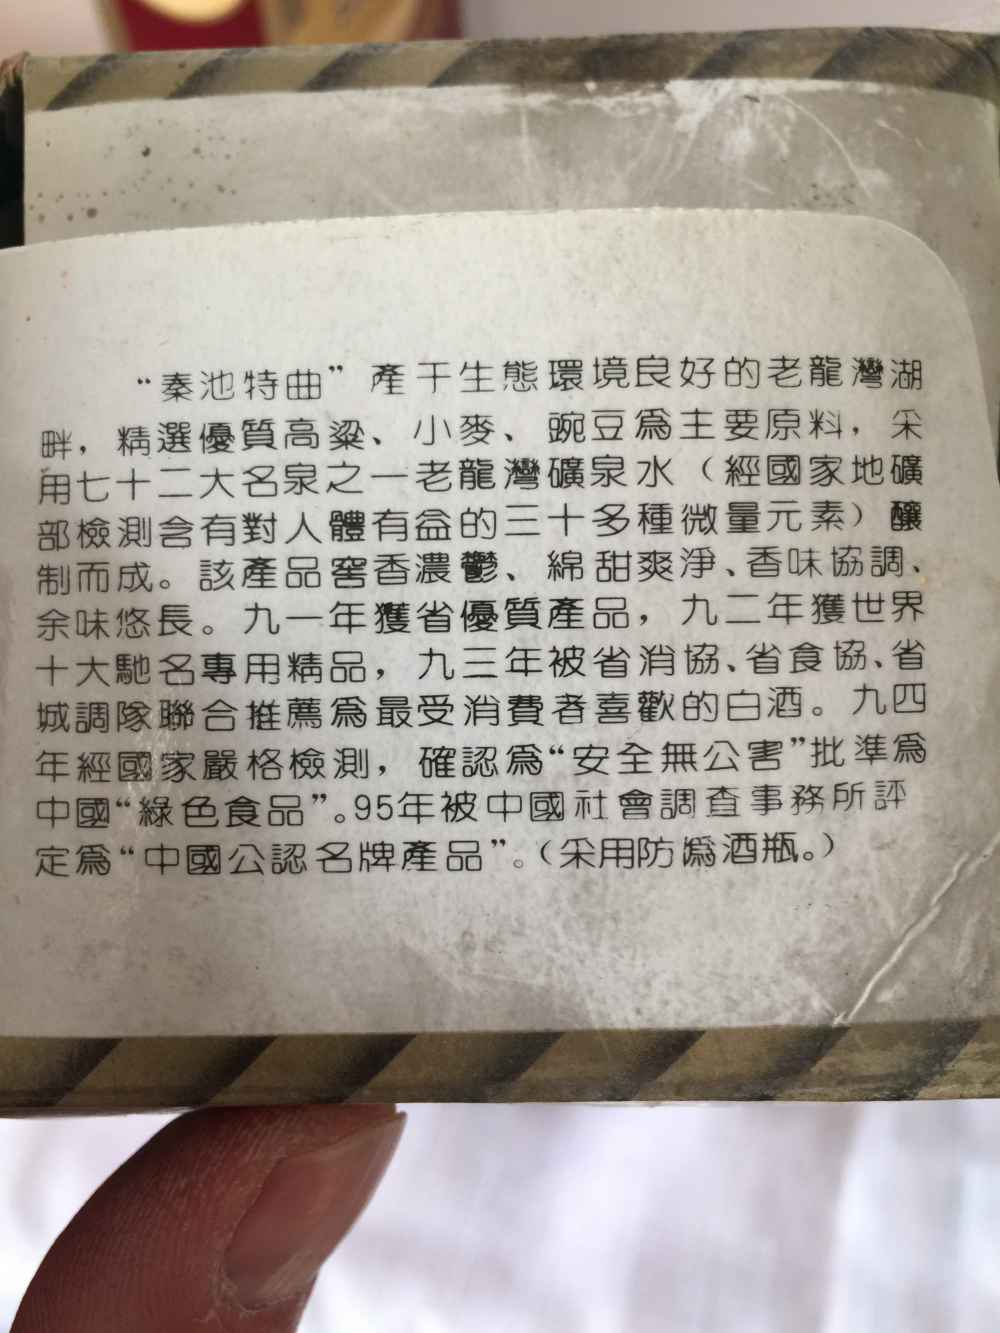 “秦池特曲”產于生態環境良好的老龍灣湖
畔，精選優質高粱、小麥、豌豆爲主要原料，采
用七十二大名泉之一老龍灣礦泉水（經國家地礦
部檢測含有對人體有益的三十多種微量元素）釀
制而成。該產品窖香濃鬱、綿甜爽淨、香味協調、
余味悠長。九一年獲省優質產品，九二年獲世界
十大馳名專用精品，九三年被省消協、省食協、省
城調隊聯合推薦爲最受消費者喜歡的白酒。九四
年經國家嚴格檢測，確認爲“安全無公害”批準爲
中國“綠色食品”。95年被中國社會調查事務所評
定爲“中國公認名牌產品”。（采用防僞酒瓶。）